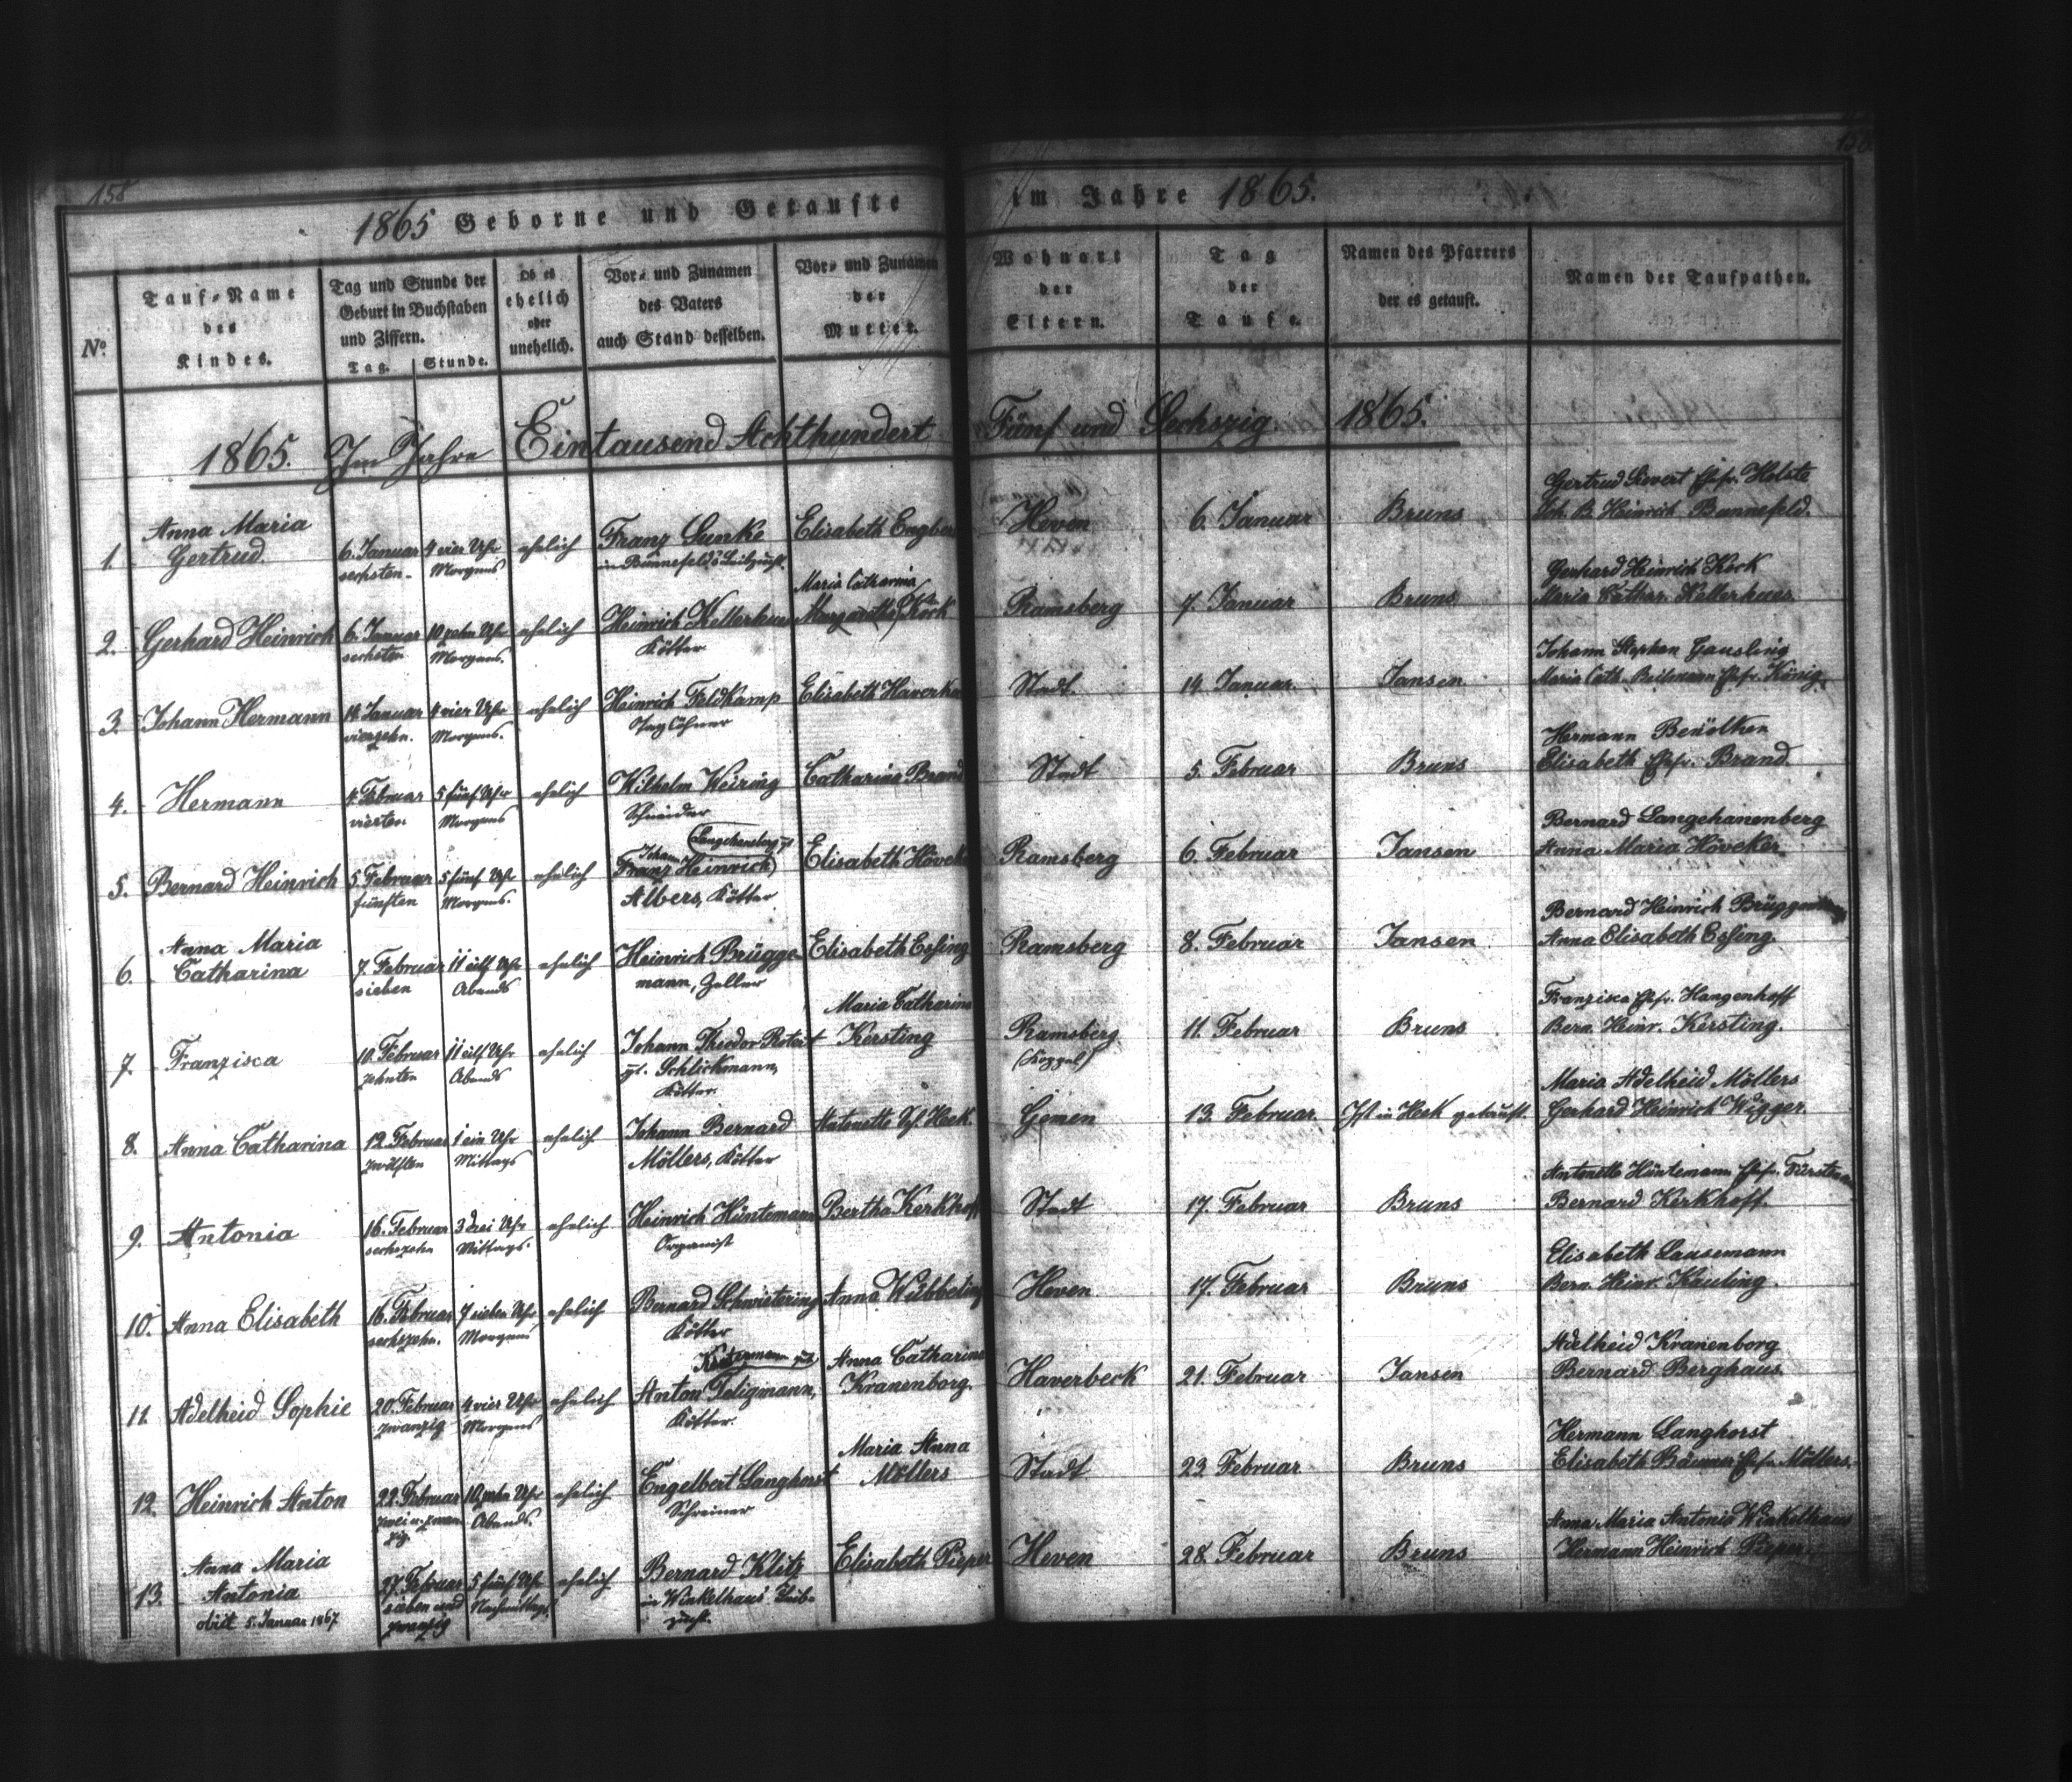 158
1865 Geborne und Getaufte im Jahre 1865.
No.
Tauf-Name des Kindes.
Tag und Stunde der Geburt in Buchstaben und Ziffern.
Tag. Stunde.
Ob es ehelich oder unehelich.
Vor- und Zunamen des Vaters auch Stand desselben.
Vor- und Zunamen der Mutter.
Wohnort der Eltern.
Tag der Taufe.
Namen des Pfarrers der es getauft.
Namen der Taufpathen.
1865. Im Jahre Eintausend Achthundert Fünf und Sechszig 1865.
Gertrud Sievert Ehfr. Holste
Anna Maria
1. Gertrud. 6. Januar 4 vier Uhr ehelich Franz Lunke Elisabeth Heven 6. Januar Bruns Joh. B. Heinrich Bannefeld.
sechsten. Morgens in Bannefeld's Leibzucht.
Maria Catharina Gerhard Heinrich Kock
2. Gerhard Heinrich 6. Januar 10 zehn Uhr ehelich Heinrich Kellerhus Kock Ramsberg 7. Januar Bruns Maria Cathar. Kellerhues
sechsten Morgens. Kötter
Johann Stephan Gausling
3. Johann Hermann 14. Januar 4 vier Uhr ehelich Heinrich Feldkamp Elisabeth Stadt. 14. Januar. Jansen Maria Cath. Ehfr. König.
vierzehn. Morgens. Taglöhner
Hermann
4. Hermann 4. Februar 5 fünf Uhr ehelich Wilhelm Weiring Catharina Brand Stadt 5. Februar Bruns Elisabeth Ehfr. Brand
vierten Morgens Schneider
Bernard Langehanenberg
Johann
5. Bernard Heinrich 5. Februar 5 fünf Uhr ehelich Franz Heinrich Elisabeth Ramsberg 6. Februar Jansen Anna Maria Höveker
fünften Morgens. Albers, Kötter
Anna Maria Bernard Heinrich
6. Catharina 7. Februar 11 eilf Uhr ehelich Heinrich Brügge Elisabeth Essing Ramsberg 8. Februar Jansen Anna Elisabeth Essing.
sieben Abends mann, Zeller
Maria Catharina Franzisca Ehfr. Hangenhoff
7. Franzisca 10. Februar 11 eilf Uhr ehelich Johann Theodor Rotert Kersting Ramsberg 11. Februar Bruns Bern. Heinr. Kersting.
zehnten Abends gt. Schlickmann, (Koppel)
Kötter.
Maria Adelheid Möllers
8. Anna Catharina 12. Februar 1 ein Uhr ehelich Johann Bernard Antonette Gemen 13. Februar. Ist in Heek getauft. Gerhard Heinrich Wigger.
zwölften Mittags Möllers, Kötter
Antonette Hüntemann Ehfr.
9. Antonia 16. Februar 3 drei Uhr ehelich Heinrich Hüntemann Bertha Kerkhoff Stadt 17. Februar Bruns Bernard Kerkhoff.
sechszehn Mittags. Organist
Elisabeth Lausemann
10. Anna Elisabeth 16. Februar 7 sieben Uhr ehelich Bernard Schwietering Anna Wübbeling Heven 17. Februar Bruns Bern. Heinr. Kauling.
sechszehn. Morgens Kötter
Anna Catharina Adelheid Kranenborg
11. Adelheid Sophie 20. Februar 4 vier Uhr ehelich Anton Feligmann, Kranenborg. Haverbeck 21. Februar Jansen Bernard Berghaus
zwanzig Morgens Kötter.
Maria Anna Hermann Langhorst
12. Heinrich Anton 22. Februar 10 zehn Uhr ehelich Engelbert Langhorst Möllers Stadt 23. Februar Bruns Elisabeth Ehfr. Möllers.
zwei u. zwan- Abends. Schreiner
zig.
Anna Maria Anna Maria Antonia Winkelhaus
13. Antonia 27. Februar 5 fünf Uhr ehelich Bernard Klitz Elisabeth Pieper Heven 28. Februar Bruns Hermann Heinrich Pieper.
obiit 5. Januar 1867 sieben und Nachmittags. in Winkelhaus' Leib-
zwanzig zucht.